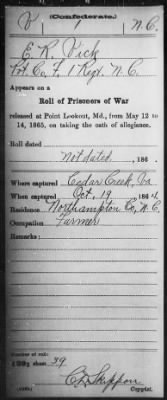 (Confederate.)
V 1 N.C.
E. R. Vick
Pvt. Co. F, 1 Regt. N.C.
Appears on a
Roll of Prisoners of War
released at Point Lookout, Md., from May 12 to
14, 1865, on taking the oath of allegiance.
Roll dated
Not dated, 186 .
Where captured Cedar Creek, Va
When captured Oct. 19, 1864.
Residence Northampton Co, N.C.
Occupation Farmer
Remarks:
Number of roll:
sheet 39
Copyist.